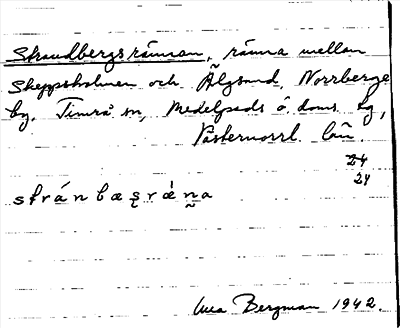 Strandbergsrännan, ränna mellan
Skeppsholmen och Älgsund, Norrberge
by, Timrå sn, Medelpads ö. doms. hg,
Västernorrl. län.
24
24
stránbæsrǽna
Bergman 1942.